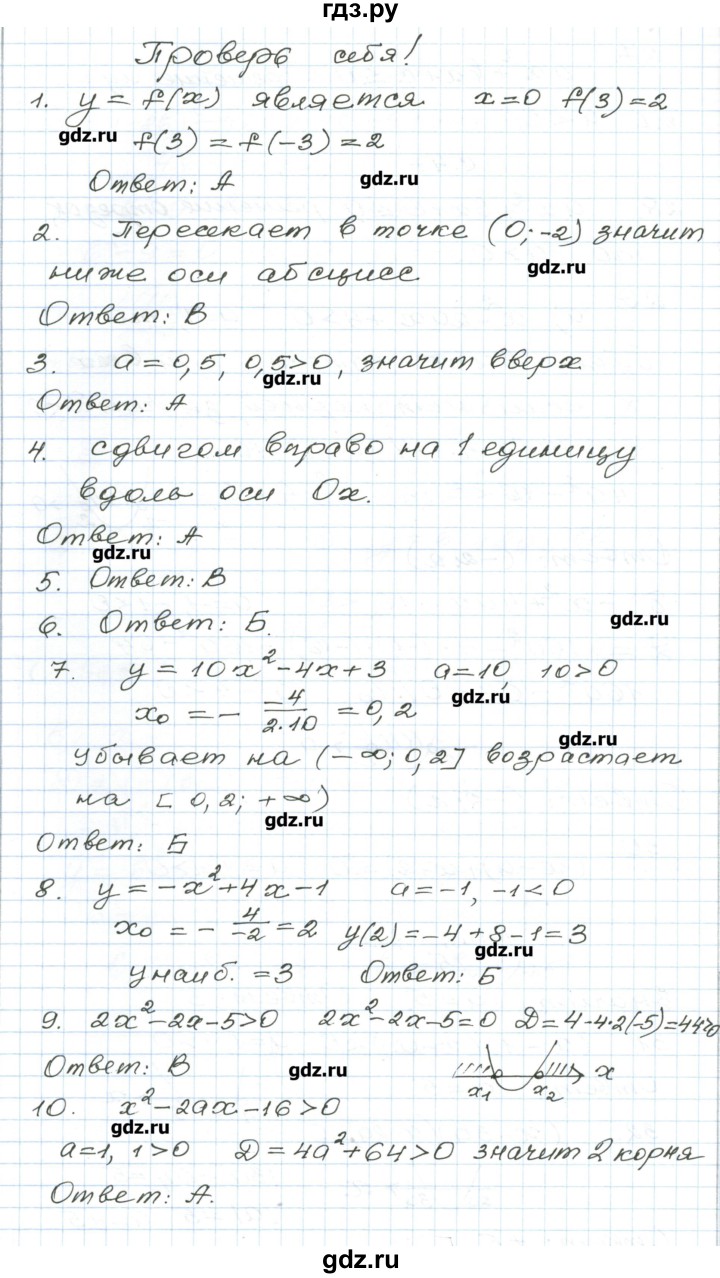 гдз.ру
Проверь себя!
1. y = f(x) является x=0 f(3)=2
gdz.ru
f(3) = f(-3) = 2
Ответ: А
gdz.ru
2. Пересекает в точке (0; -2) значит
ниже оси абсцисс
gdz.ru
Ответ: В
3. a = 0,5, 0,5>0, значит вверх
gdz.ru
Ответ: А
4. сдвигом вправо на 1 единицу
вдоль оси Ox.
Ответ: А
gdz.ru
5. Ответ: В
6. Ответ: Б.
gdz.ru
7. y = 10x²-4x+3 a=10, 10>0
gdz.ru
x₀ = - -4/2·10 = 0,2
gdz.ru
убывает на (-∞; 0,2] возрастает
на [0,2; +∞)
gdz.ru
Ответ: Б
8. y = -x²+4x-1 a=-1, -1<0
x₀ = - 4/-2 = 2 y(2)=-4+8-1=3
gdz.ru
yнаиб. = 3 Ответ: Б
9. 2x²-2x-5>0 2x²-2x-5=0 Д=4-4·2(-5)=44>0
Ответ: В
gdz.ru
x₁ x₂ x
10. x²-2ax-16>0
gdz.ru
a=1, 1>0 Д=4a²+64>0 значит 2 корня
Ответ: А.
gdz.ru